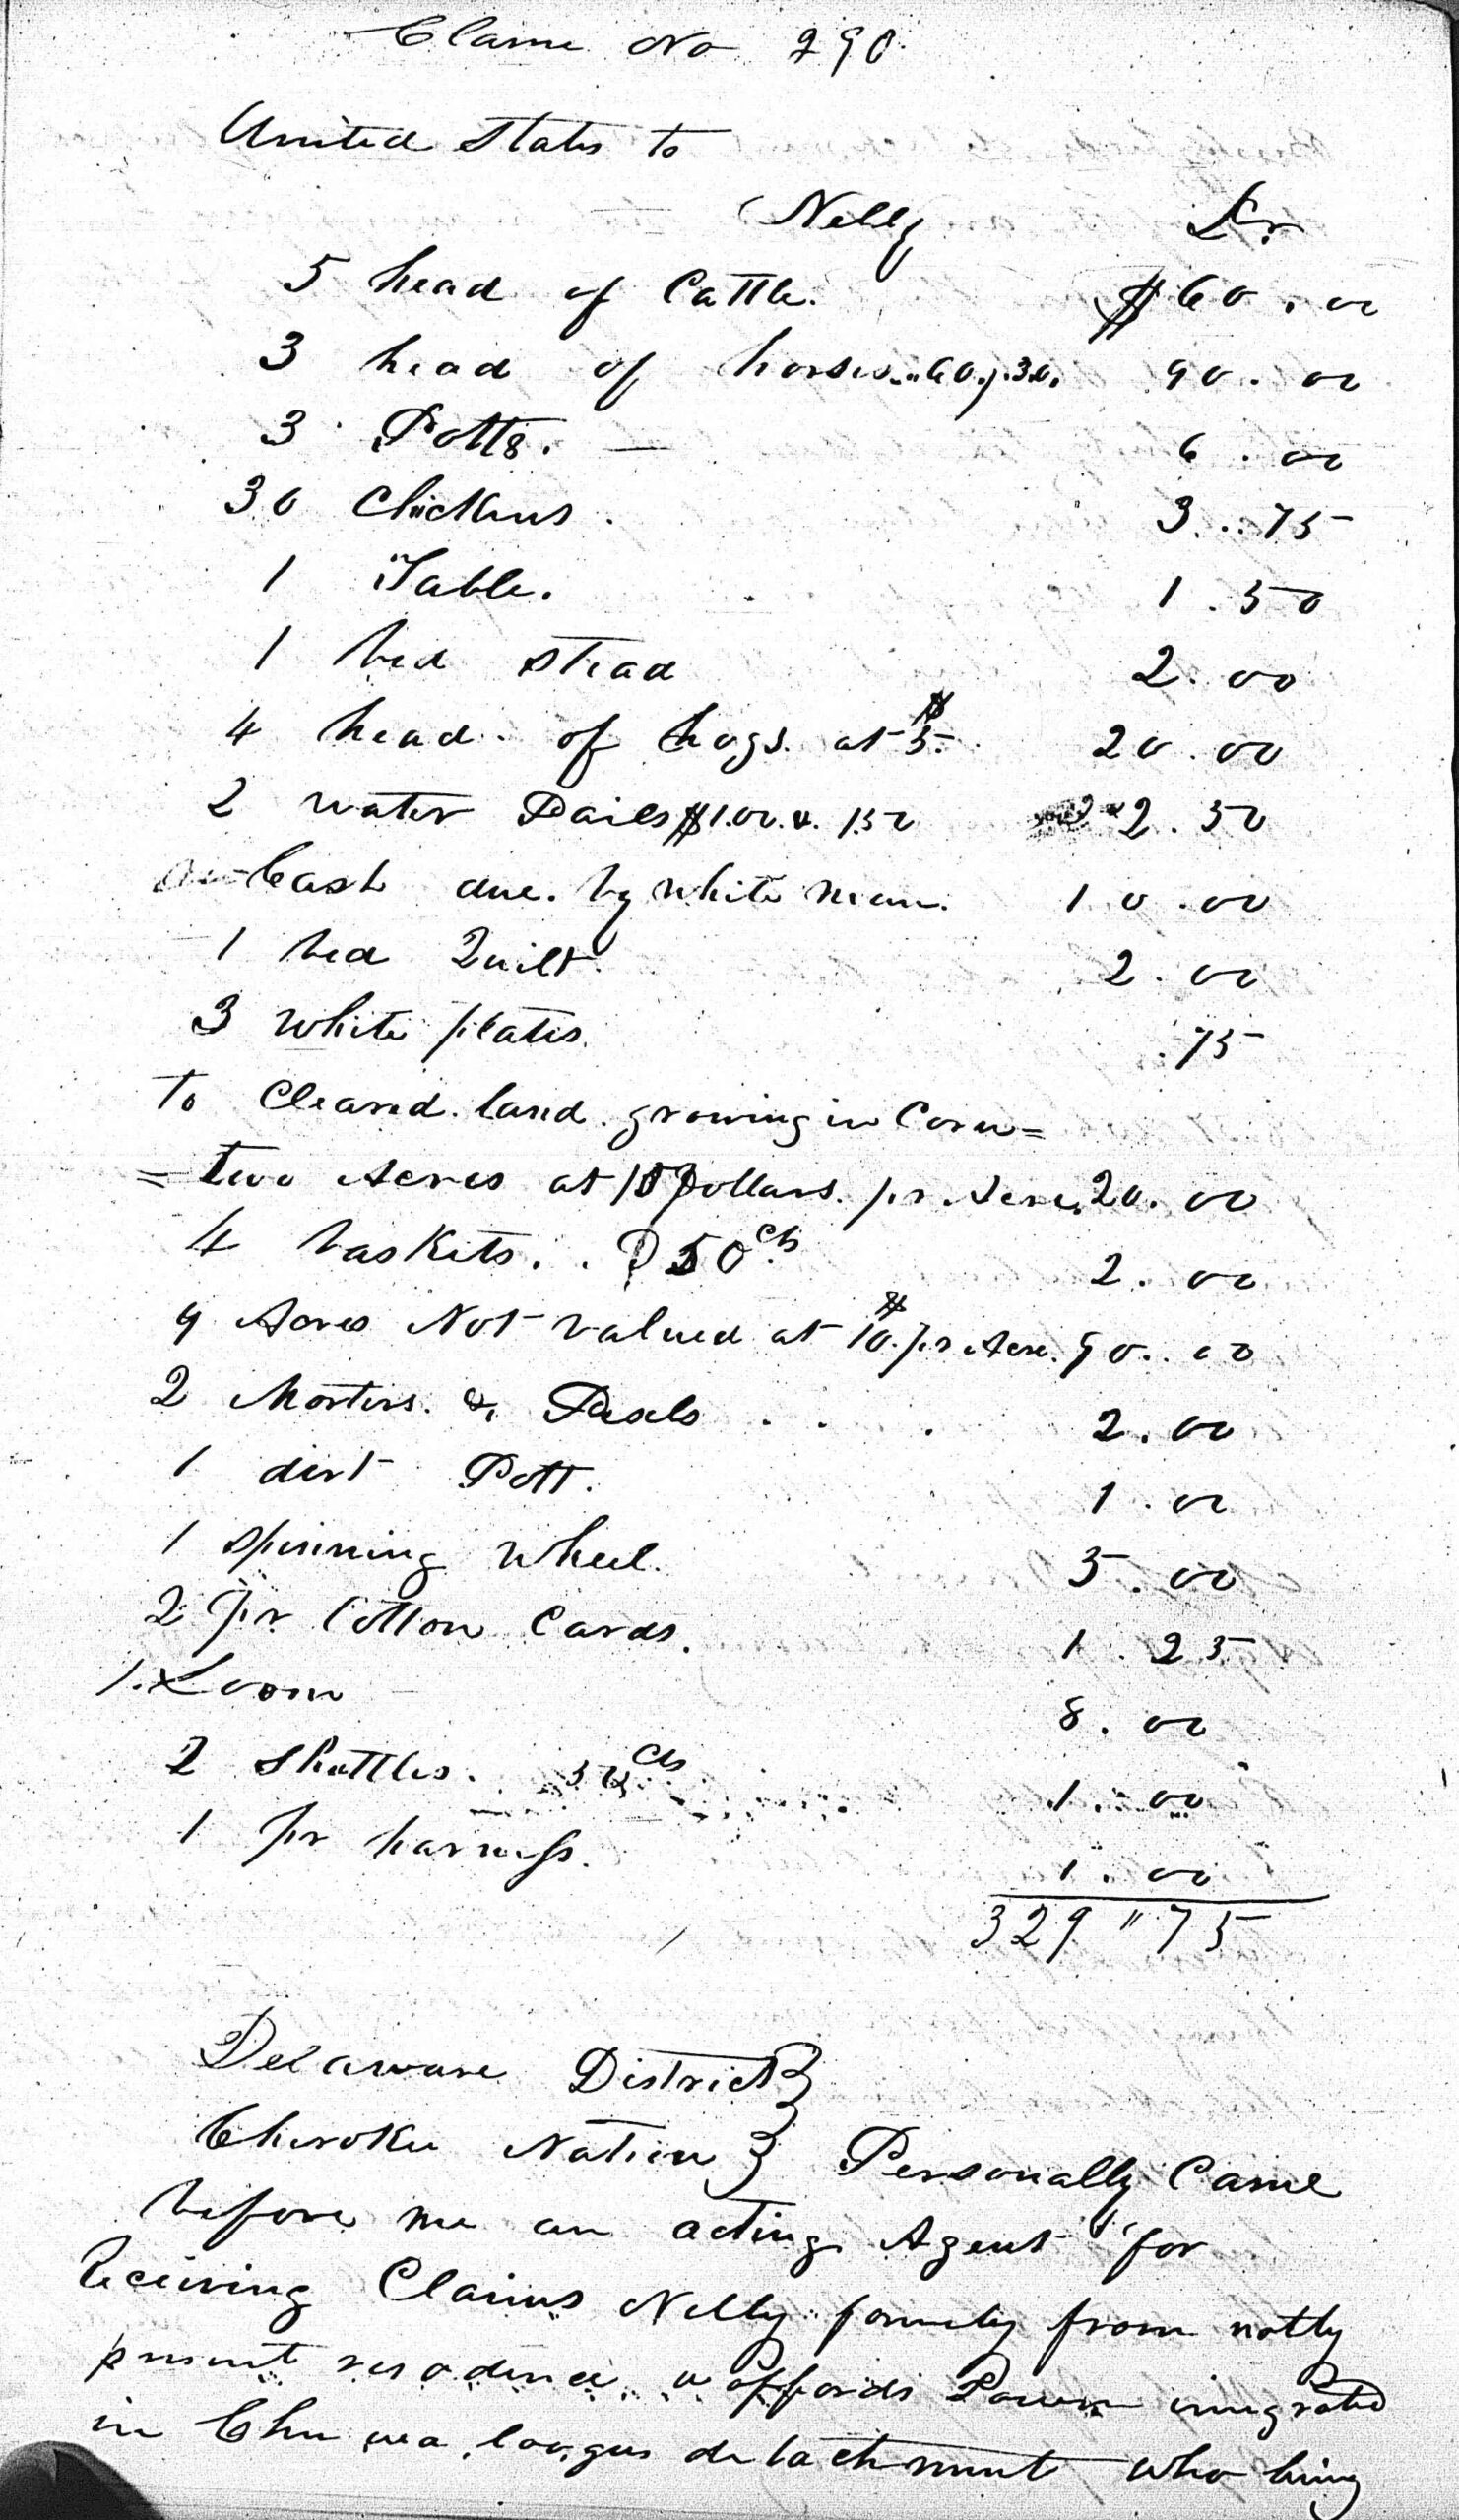 Claim No 290
United States to
Nelly Dr
5 head of Cattle. $60.00
3 head of horses. 60, 30. 90.00
3 Potts. — 6.00
30 Chickens. 3..75
1 Table. 1.50
1 bed stead 2.00
4 head of hogs. at $5. 20.00
2 water Pails $1.00. & 1.50 2.50
Cash due. by white man. 10.00
1 bed Quilt. 2.00
3 white plates. .75
To Cleared. land. growing in Corn=
= two Acres at 10 Dollars. pr. Acre. 20.00
4 baskets. . 50 cts 2.00
9 Acres Not valued at $10. pr Acre. 90..00
2 Morters. & Pesels . . . 2.00
1 dirt Pott. 1.00
1 spinning wheel. 5.00
2 pr Cotton Cards. 1.25
1. Loom 8.00
2 Shuttles. 50 cts 1.00
1 pr harness. 1.00
329 " 75
Delaware District }
Cherokee Nation } Personally Came
before me an acting Agent for
Receiving Claims Nelly formely from notly
present residence offords Town imigrated
in Chu wa loo, gus detachment who being